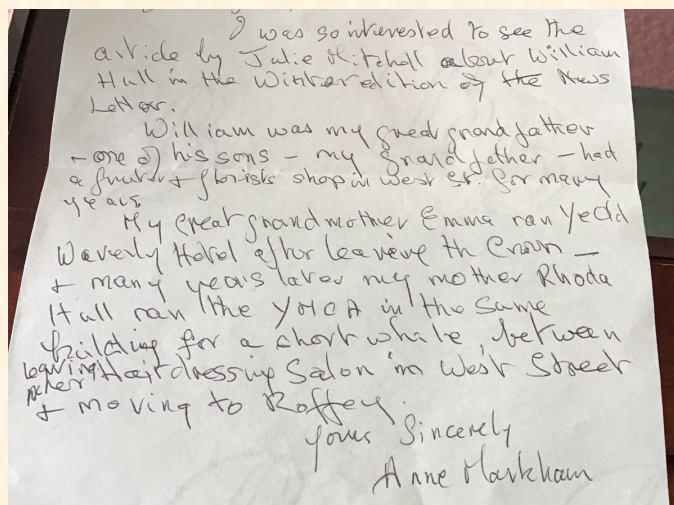 I was so interested to see the
article by Julie Mitchell about William
Hull in the Winter edition of the News
Letter.
William was my great grandfather
- one of his sons - my grandfather - had
a fruiter + florists shop in West St. for many
years.
My great grandmother Emma ran
Waverly Hotel after leaving the Crown -
+ many years later my mother Rhoda
Hull ran the YMCA in the same
building for a short while, between
leaving her Hairdressing Salon in West Street
+ moving to Roffey.
Yours Sincerely
Anne Markham